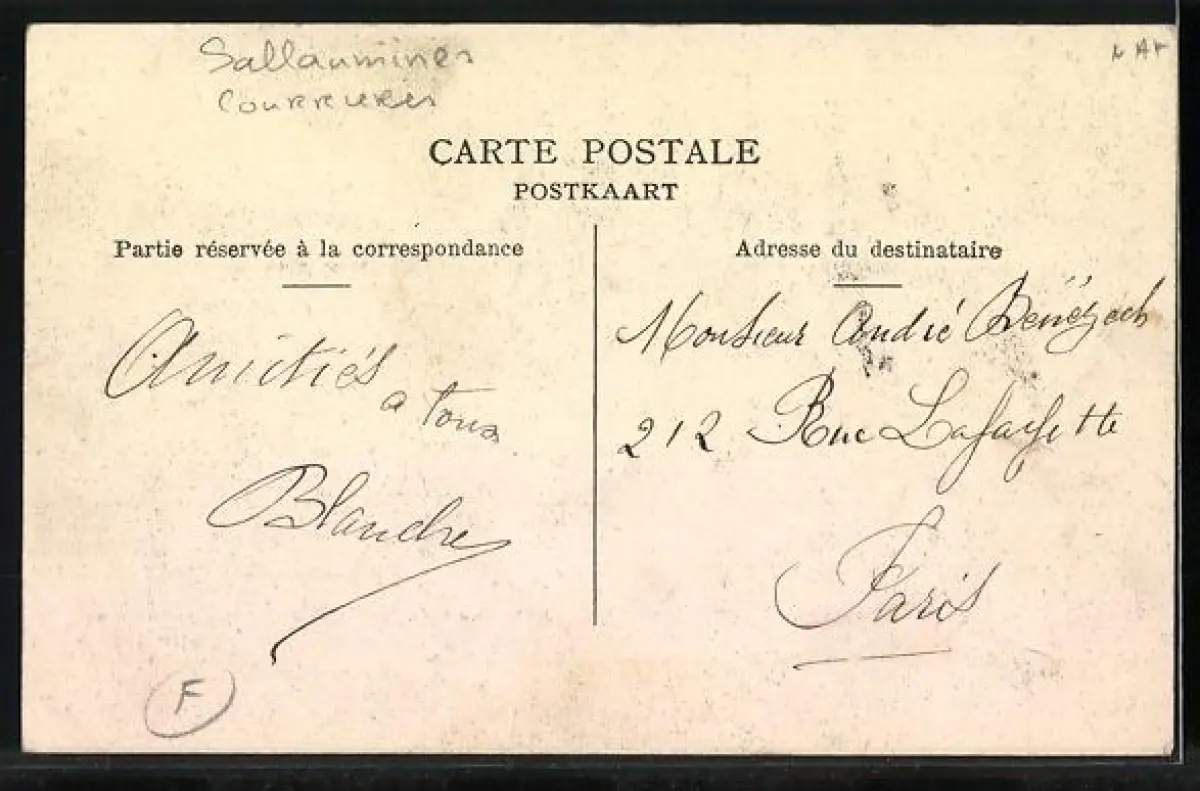 Sallaumines
Courrieres
CARTE POSTALE
POSTKAART
Partie réservée à la correspondance
Adresse du destinataire
Amitiés
a tous
Blanche
Monsieur André Bénézech
212 Rue Lafayette
Paris
F